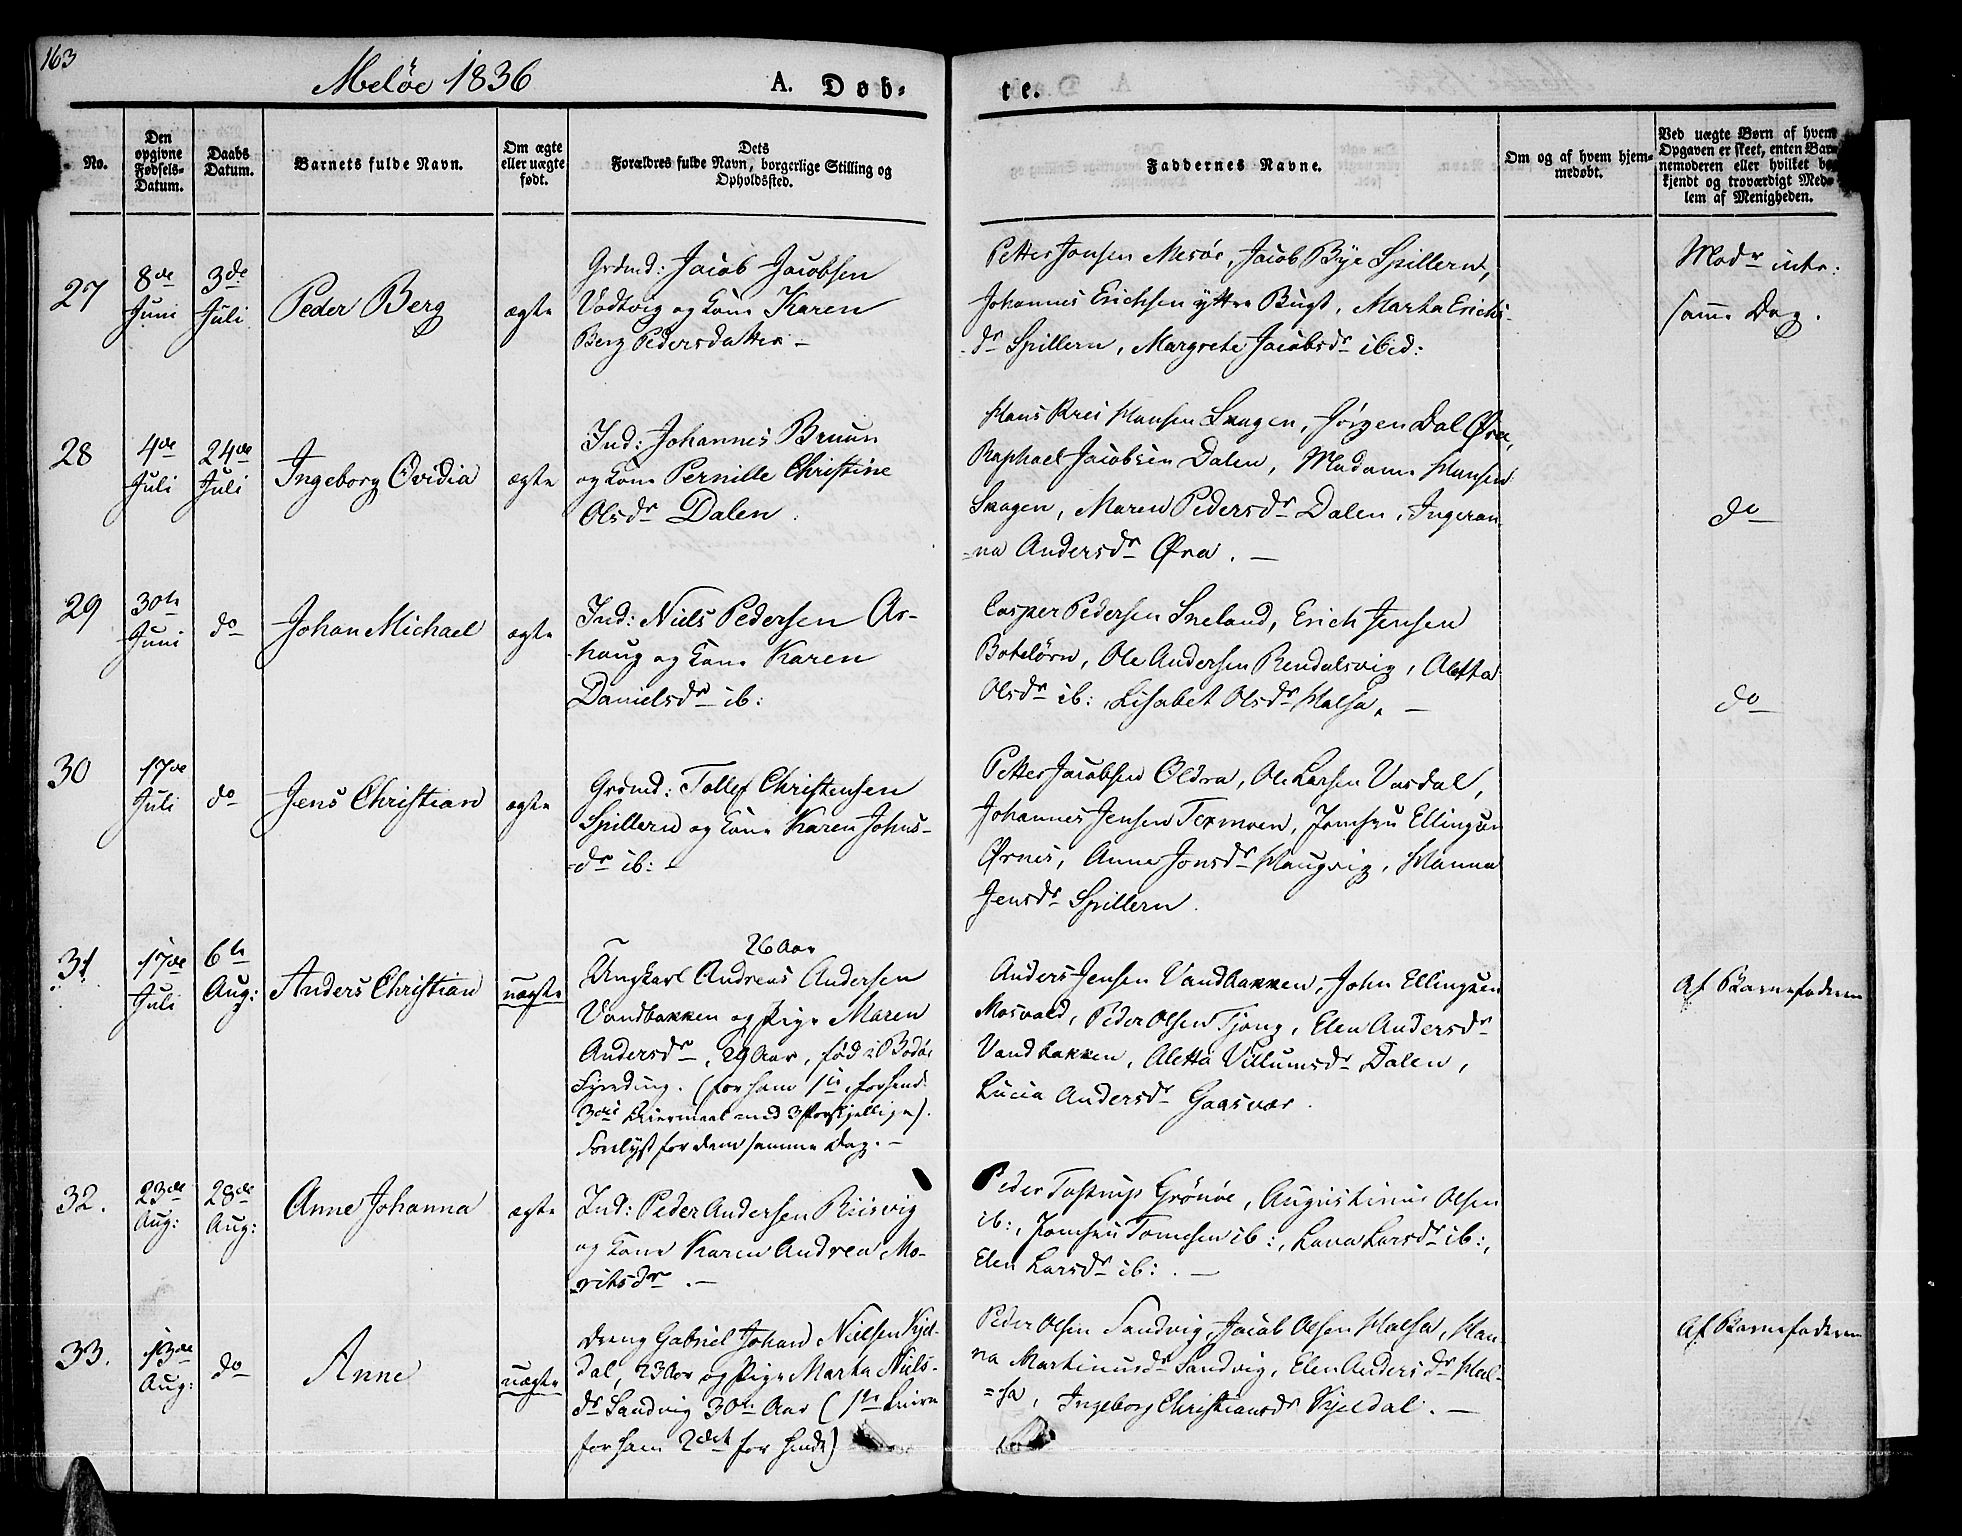 163
Meløe 1836
A. Døb-
te.
No.
Den
opgivne
Fødsels-
Datum.
Daabs
Datum.
Barnets fulde Navn.
Om ægte
eller uægte
født.
Dets
Forældres fulde Navn, borgerlige Stilling og
Opholdssted.
Faddernes Navne.
Om og af hvem hjem-
medøbt.
Ved uægte Børn af hvem
Opgaven er skeet, enten Bar-
nemoderen eller hvilket be-
kjendt og troværdigt Med-
lem af Menigheden.
27
8de
Juni
3de
Juli
Peder Berg
ægte
Grdmd: Jacob Jacobsen
Vodtvig og Kone Karen
Berg Pedersdatter -
Petter Jonsen Mesøe, Jacob Bye Spillern,
Johannes Erichsen yttre Bugt, Martha Erichs-
dr Spillern, Margrete Jacobsdr ibid:
Modr intr:
samme Dag.
28
4de
Juli
24de
Juli
Ingeborg Ovidia
ægte
Ind: Johannes Bruun
og Kone Pernille Christine
Olsdr Dalen.
Hans Hansen Skagen, Jörgen Dal Øra,
Raphael Jacobsen Dalen, Madame Hansen
Skagen, Maren Pedersdr Dalen, Ingeran-
-na Andersdr Øra. -
do
29
30te
Juni
do
Johan Michael
ægte
Ind: Niels Pedersen Ar-
-haug og Kone Karen
Danielsdr ib:
Casper Pedersen Sneland, Erich Jensen
Botelörn, Ole Andersen Rendalsvig, Aletta
Olsdr ib:, Lisabet Olsdr Halsa, -
do
30
17de
Juli
do
Jens Christian
ægte
Grdmd: Tollef Christensen
Spillern og Kone Karen Johns-
-dr ib: -
Petter Jacobsen Oldra, Ole Larsen Vasdal,
Johannes Jensen Texmoen, Jomfru Ellingsen
Ørnes, Anne Jonsdr Haugvig, Hanna
Jensdr Spillern.
31
17de
Juli
6te
Aug:
Anders Christian
uægte
26 Aar
Ungkarl Andreas Andersen
Vandbakken og Pige Maren
Andersdr, 29 Aar, fød i Bodøe
Fjerding. (for ham 1ste, for hend:
3die Leiermaal med 3 forskjellige).
for dem samme Dag. -
Anders Jensen Vandbakken, John Ellingsen
Mosvold, Peder Olsen Tjong, Elen Andersdr
Vandbakken, Aletta Villumsdr Dalen,
Lucia Andersdr Gaasvær.
Af Barnefaderen
32.
23de
Aug:
28de
Aug:
Anne Johanna
ægte
Ind: Peder Andersen Riisvig
og Kone Karen Andrea Mo-
ritsdr. -
Peder Tostrup Grönøe, Augustinus Olsen
ib:, Jomfru Tommesen ib:, Lava Larsdr ib:,
Elen Larsdr ib:. -
33.
13de
Aug:
do
Anne
uægte
Dreng Gabriel Johan Nielsen Kjel-
dal, 23 Aar og Pige Marta Niels-
dr Sandvig 30te Aar (1ste Leierm
for ham 2det for hende)
Peder Olsen Sandvig, Jacob Olsen Halsa, Han-
na Martinusdr Sandvig, Elen Andersdr Hal-
=sa, Ingeborg Christiansdr Kjeldal. -
Af Barnefaderen